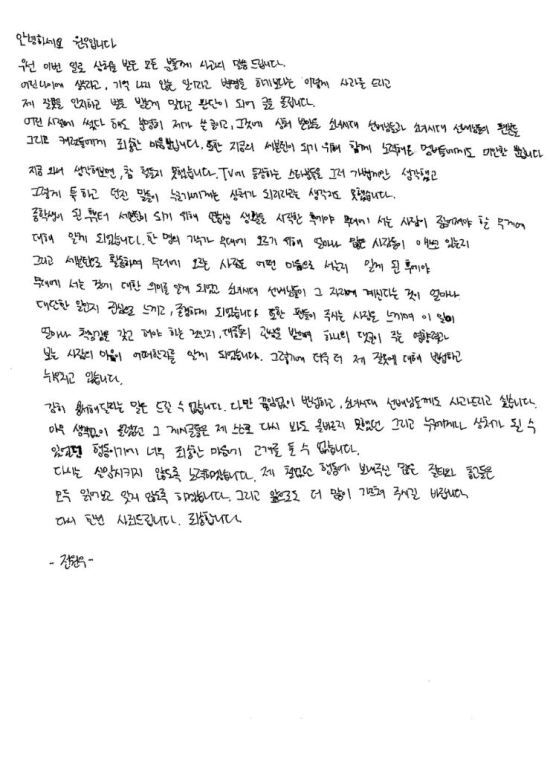 안녕하세요 원우입니다
우선 이번 일로 상처를 받은 모든 분들께 사과의 말씀 드립니다.
어린나이에 썼다고, 기억 나지 않는 일이라고 변명을 하기보다는 이렇게 사과를 드리고
제 잘못을 인정하고 벌을 받는게 맞다고 판단이 되어 글을 올립니다.
어린 시절에 썼다 해도 분명히 제가 쓴 글이고, 그것에 상처 받았을 소녀시대 선배님들과 소녀시대 선배님들의 팬분들
그리고 캐럿들에게 죄송한 마음뿐입니다. 또한 지금의 세븐틴이 되기 위해 함께 노력해온 멤버들에게도 미안할 뿐입니다
지금 와서 생각해보면, 참 철들지 못했습니다. TV에 등장하는 스타분들을 그저 가볍게만 생각했고
그렇게 툭하고 던진 말들이 누군가에게는 상처가 되리라고는 생각지도 못했습니다.
중학생이 된 후부터 세븐틴이 되기 위해 연습생 생활을 시작한 후에야 무대에 서는 사람이 짊어져야 할 무게에
대해 알게 되었습니다. 한 명의 가수가 무대에 오르기 위해 얼마나 많은 시간들이 있는지
그리고 세븐틴으로 활동하며 무대에 오르는 사람은 어떤 마음으로 서는지 알게 된 후에야
무대에 서는 것에 대한 의미를 알게 되었고 소녀시대 선배님들이 그 자리에 계신다는 것이 얼마나
대단한 일인지 진심으로 느끼고, 존경하게 되었습니다 또한 팬들이 주시는 사랑도 느끼며 이 일이
얼마나 책임감을 갖고 해야 하는 것인지, 대중들의 관심을 받으며 하나의 댓글이 주는 영향력과
보는 사람의 마음이 어떠한지를 알게 되었습니다. 그렇기에 더욱 더 제 잘못에 대해 반성하고
뉘우치고 있습니다.
감히 용서해달라는 말은 드릴 수 없습니다. 다만 끊임없이 반성하고, 소녀시대 선배님들께도 사과드리고 싶습니다.
아무 생각없이 올렸었고 그 게시글들은 제 스스로 다시 봐도 올바르지 못했던 그리고 누구에게나 상처가 될 수
있었던 행동이기에 너무 죄송한 마음에 고개를 들 수 없습니다.
다시는 실망시키지 않도록 노력하겠습니다. 제 철없던 행동에 보내주신 많은 질타와 충고들은
모두 읽어보고 잊지 않도록 하겠습니다. 그리고 앞으로도 더 많이 가르쳐 주시길 바랍니다
다시 한번 사죄드립니다. 죄송합니다.
- 전원우 -